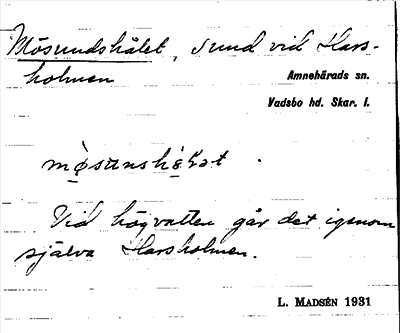 Mösundshålet, sund vid Hars-
holmen
Amnehärads sn.
Vadsbo hd. Skar. l.
Vid högvatten går det igenom
själva Harsholmen.
L. MADSÉN 1931